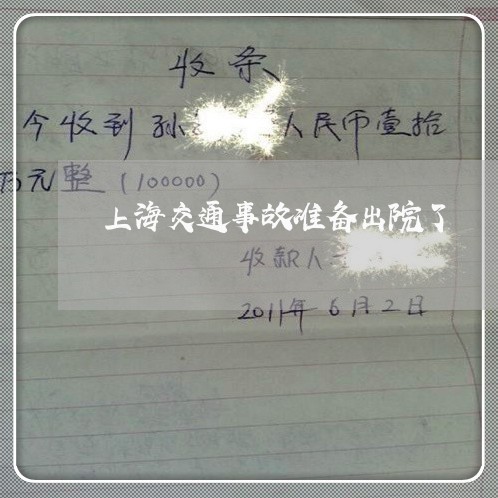 收条
今收到孙 人民币壹拾
万元整(100000)
上海交通事故准备出院了
收款人
2011年6月2日